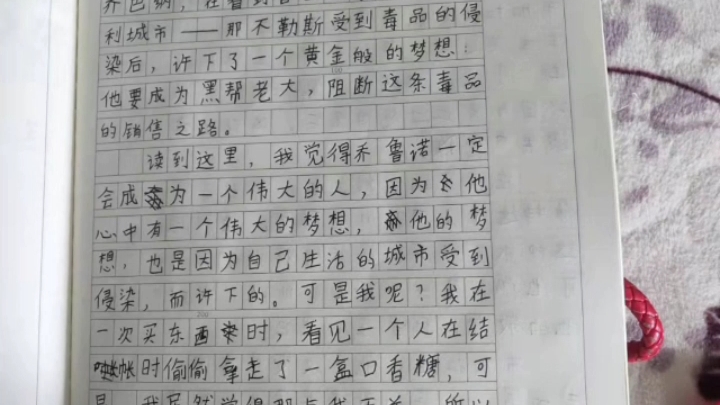 利城市——那不勒斯受到毒品的侵
染后，许下了一个黄金般的梦想：
他要成为黑帮老大，阻断这条毒品
的销售之路。
读到这里，我觉得乔鲁诺一定
会成为一个伟大的人，因为他
心中有一个伟大的梦想，他的梦
想，也是因为自己生活的城市受到
侵染，而许下的。可是我呢？我在
一次买东西时，看见一个人在结
帐时偷偷拿走了一盒口香糖，可